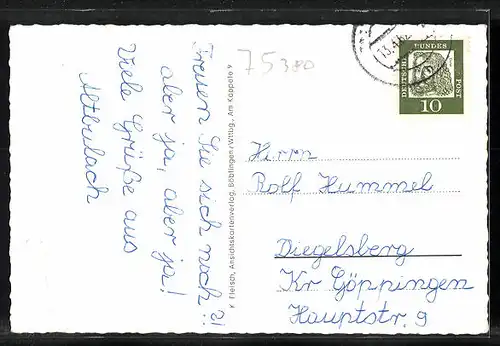 Freuen Sie sich noch?!
aber ja, aber ja!
Viele Grüße aus
Altbulach
75380
v Fleisch, Ansichtskartenverlag, Böblingen/Wttbg., Am Käppele v
DEUTSCHE BUNDES POST
10
Herrn
Rolf Hummel
Diegelsberg
Kr Göppingen
Hauptstr. 9